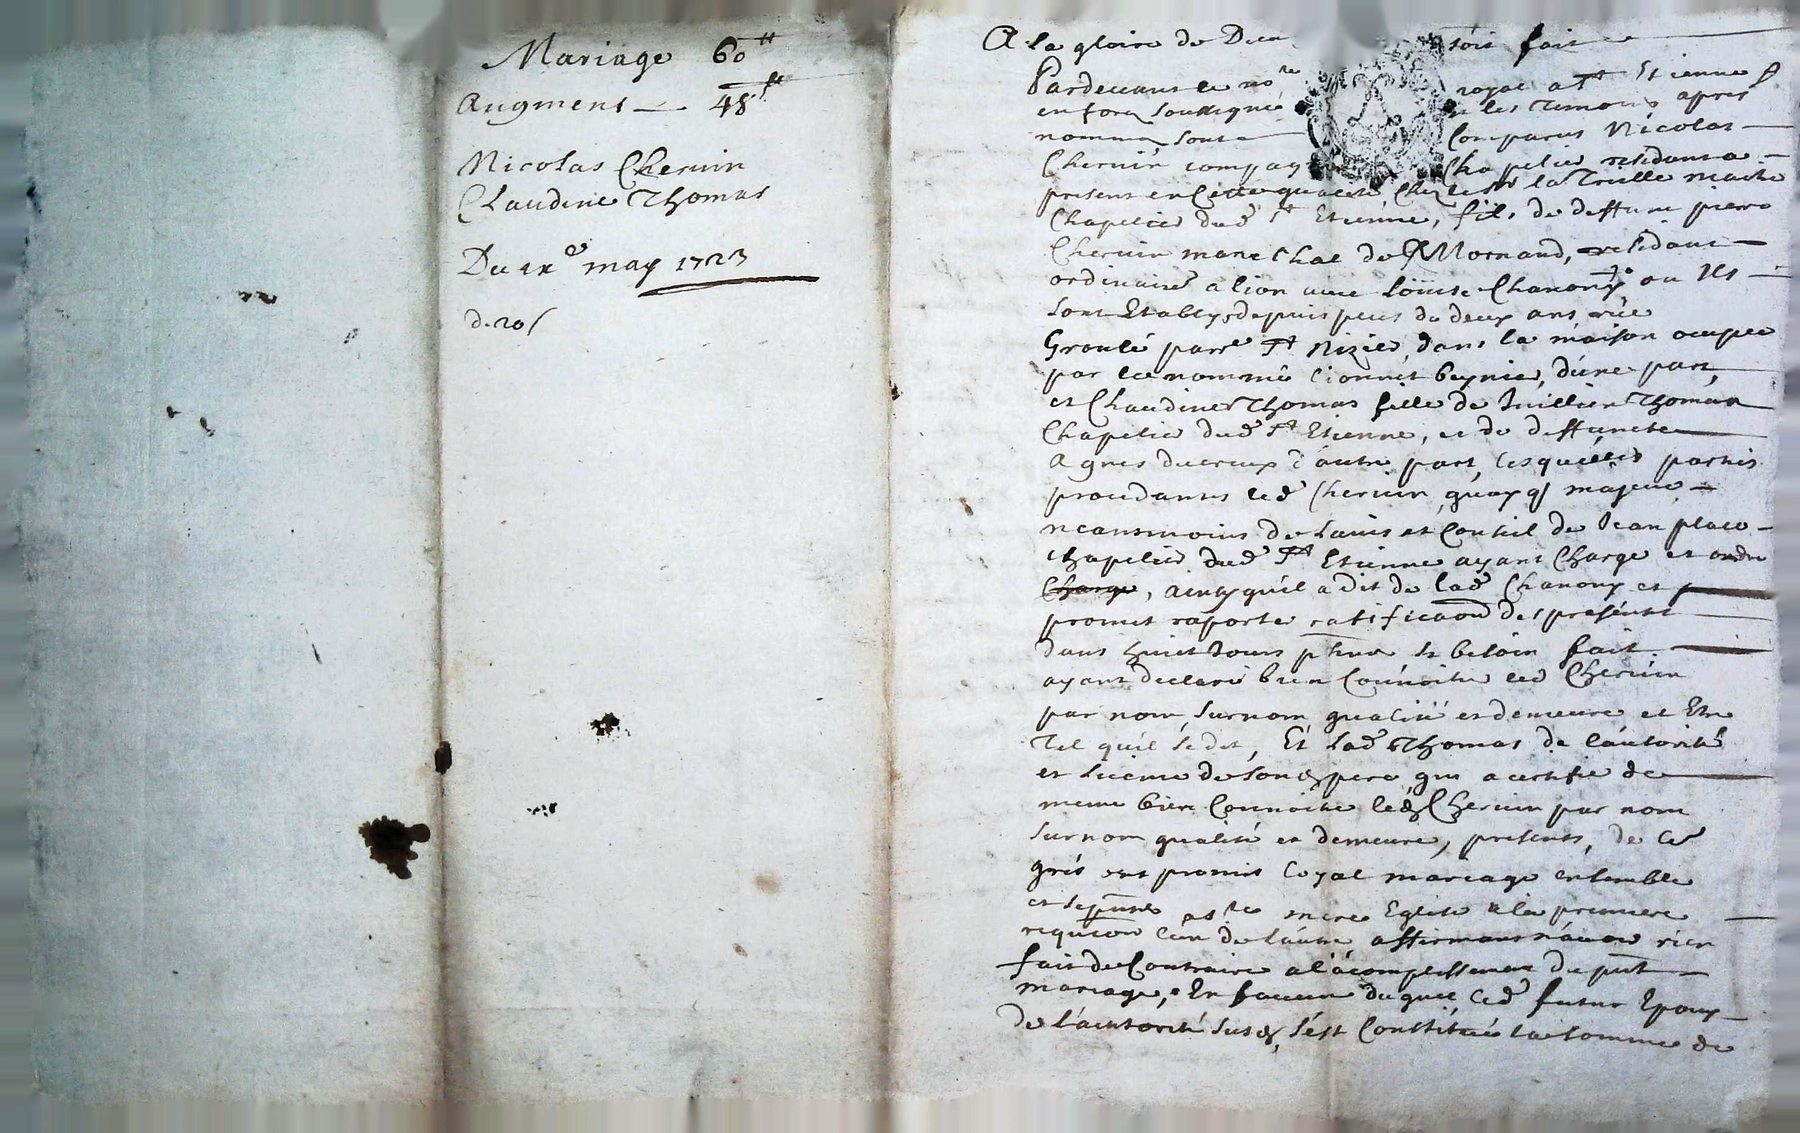 Mariage 60ᵗᵗ
Augment — 48ᵗᵗ
Nicolas Cheruin
Claudine Thomas
Du ix° may 1723
d. 20 s
A la gloire de Dieu soit fait
Pardeuant le noʳᵉ royal a Sᵗ Etienne
en forez soussigné les temoins apres
nommes sont Comparus Nicolas
Cheruin compag Chapelier residant a
present en cette qualité chez le sʳ la Treille maitre
Chapelier dud Sᵗ Etienne, fils de deffunt pierre
Cheruin marechal de Mornand, residant
ordinairᵗ a lion auec Loüise Chanony ou ils
sont Etablys depuis plus de deux ans rüe
Groulé parrᵉ Sᵗ Nizier, dans la maison occupée
par le nommé beynier, d'une part,
et Claudine Thomas fille de Thomas
Chapelier dud Sᵗ Etienne, et de deffuncte
Agnes ducreux d'autre part, lesquelles parties
procedantes led Cheruin, quoyq majeur
neantmoins de l'auis et Conseil de Jean
chapelier dud Sᵗ Etienne ayant Charge et ordre
Charge, ainsy qu'il a dit de lad Chanony et
promet raporter ratificaon des presentes
dans huict Jours si besoin fait
ayant declaré bien Connoitre led Cheruin
par nom, surnom qualité et demeure et Etre
Tel quil se dit, Et lad Thomas de l'autorité
et licence de sond pere, qui a certifié de
meme bien Connoitre led Cheruin par nom
surnom qualité et demeure, presents, de Leʳ
grés ont promis Loyal mariage ensemble
et se pnter a sᵗᵉ mere Eglise a la premiere
requion l'un de l'autre affirmant n'auoir rien
fait de Contraire a l'acomplissement du pnt
mariage, En faueur duquel led futur Epoux
de l'autorité susd, s'est Constitué la somme de